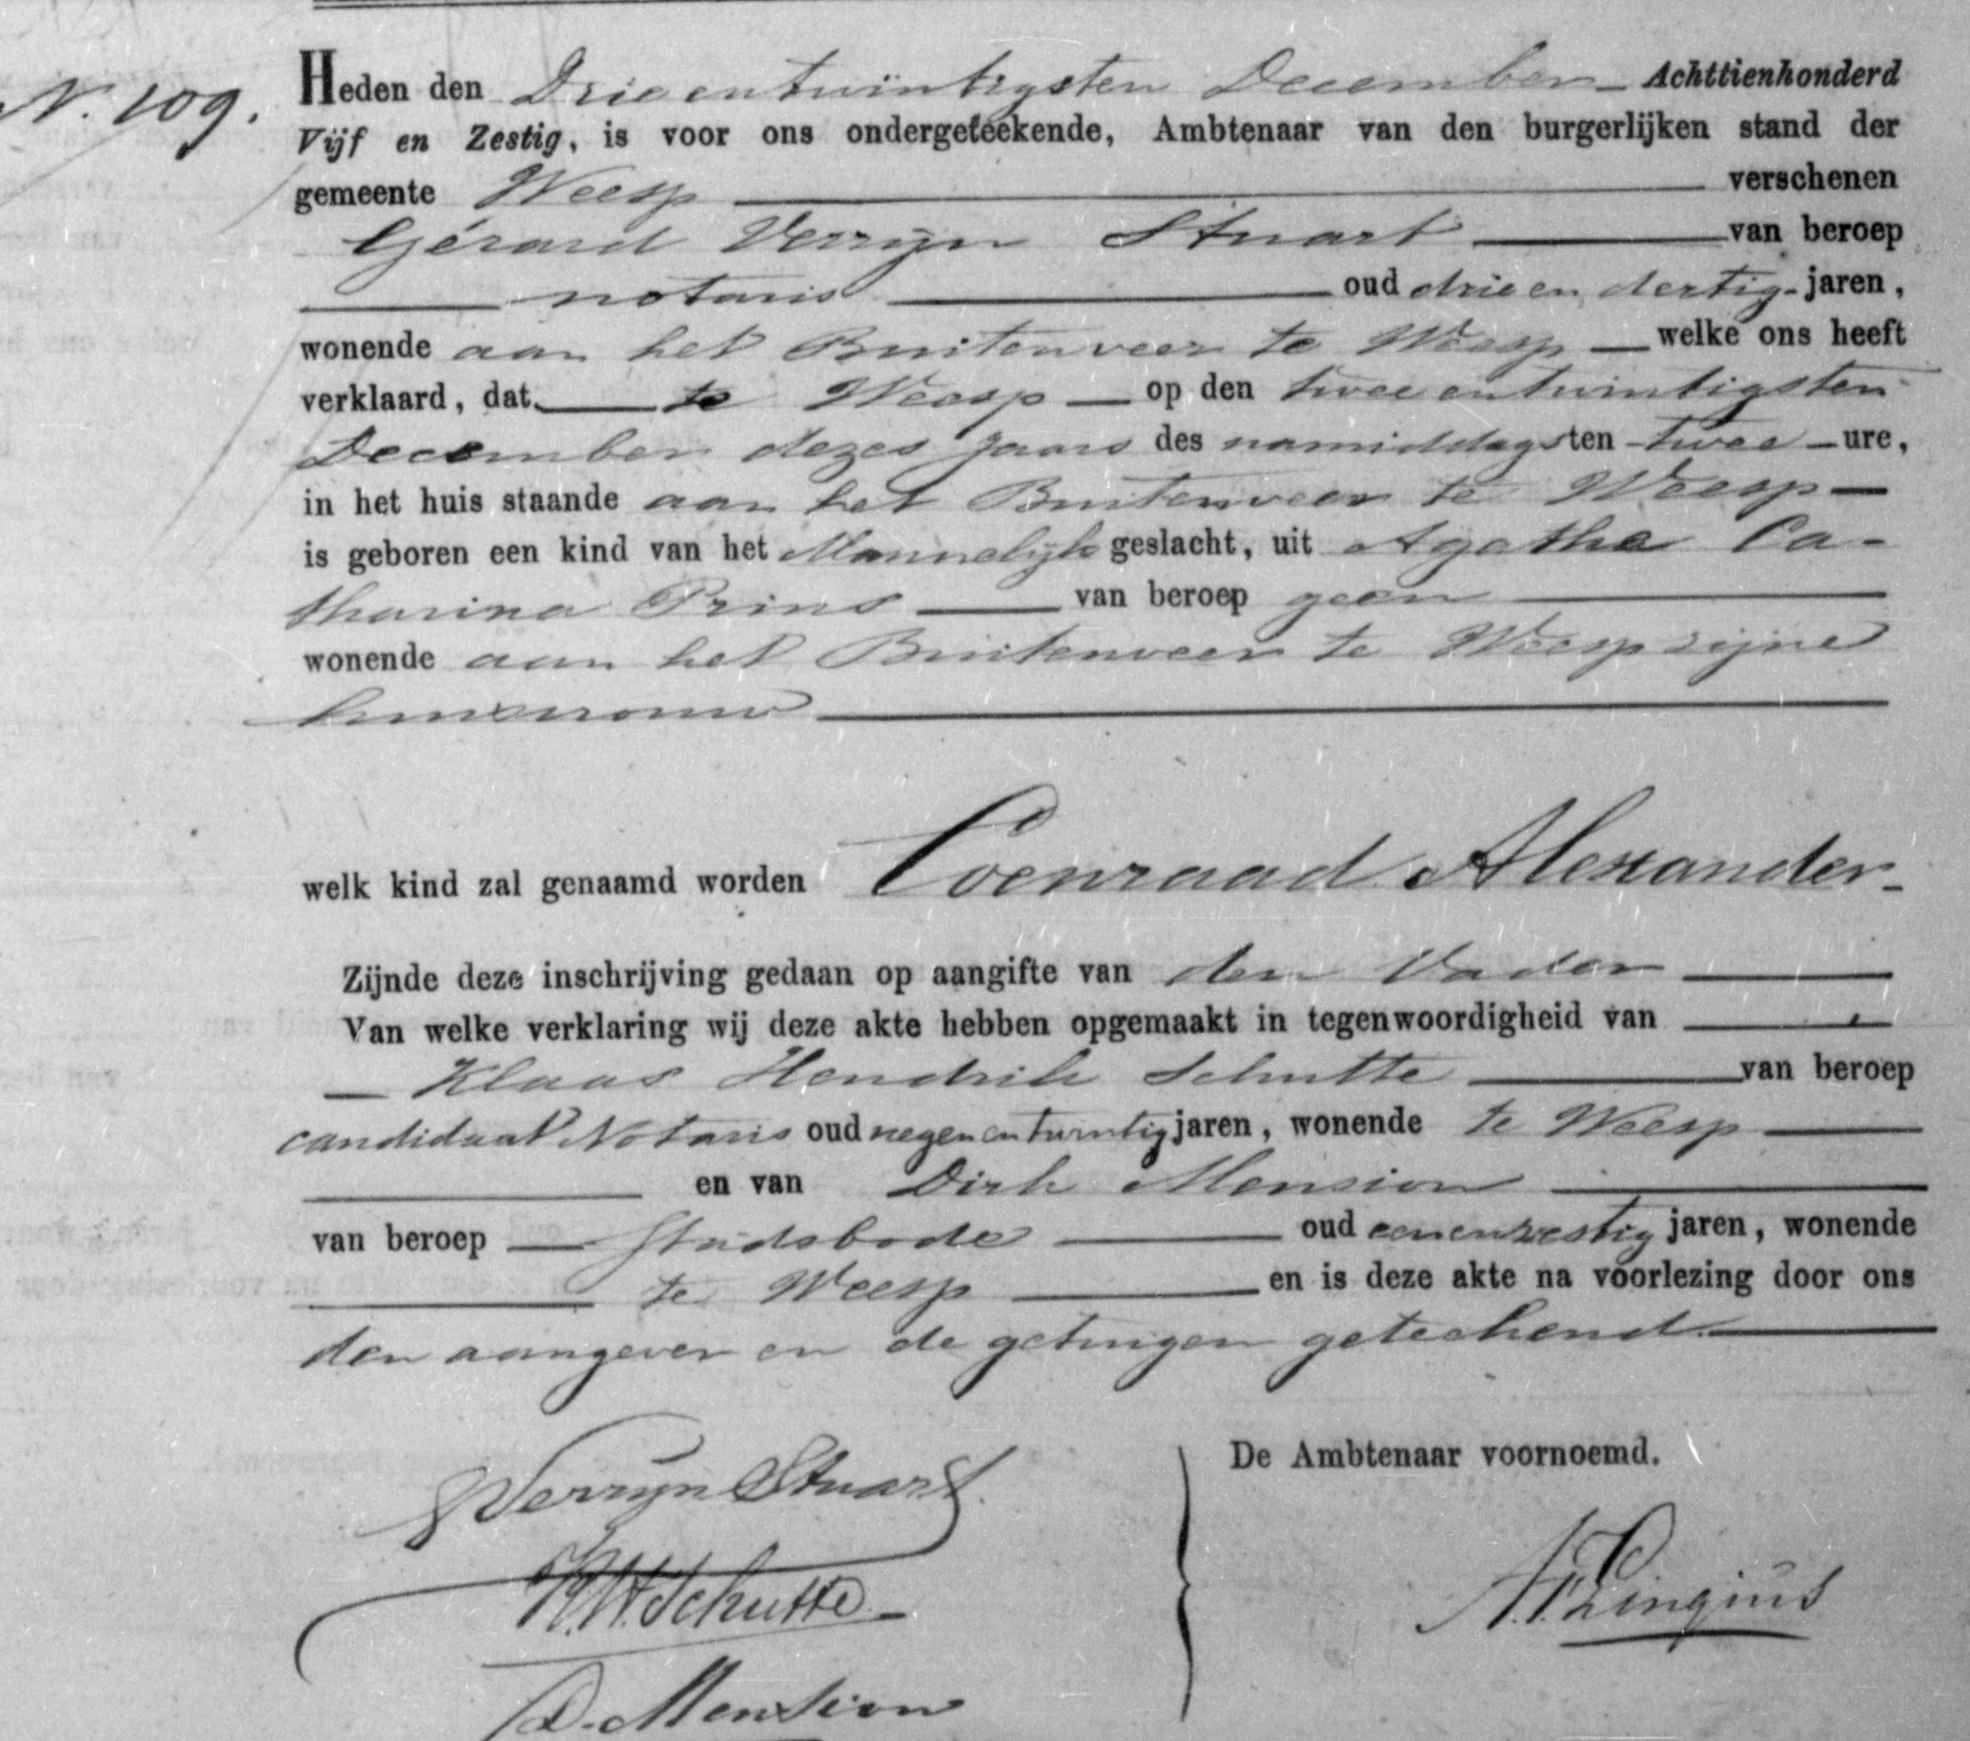 N. 109.
Heden den Drie en twintigsten December Achttienhonderd
Vijf en Zestig, is voor ons ondergeteekende, Ambtenaar van den burgerlijken stand der
gemeente Weesp verschenen
Gérard Verrijn Stuart van beroep
notaris oud drie en dertig jaren,
wonende aan het Buitenveer te Weesp welke ons heeft
verklaard, dat te Weesp op den twee en twintigsten
December dezes jaars des namiddags ten twee ure,
in het huis staande aan het Buitenveer te Weesp
is geboren een kind van het Mannelijk geslacht, uit Agatha Ca-
tharina Prins van beroep geen
wonende aan het Buitenveer te Weesp zijne
huisvrouw
welk kind zal genaamd worden Coenraad Alexander
Zijnde deze inschrijving gedaan op aangifte van den Vader
Van welke verklaring wij deze akte hebben opgemaakt in tegenwoordigheid van
Klaas Hendrik Schutte van beroep
candidaat Notaris oud negen en twintig jaren, wonende te Weesp
en van Dirk Mension
van beroep Stadsbode oud een en zestig jaren, wonende
te Weesp en is deze akte na voorlezing door ons
den aangever en de getuigen geteekend.
De Ambtenaar voornoemd.
GVerrijn Stuart
K.H. Schutte
D. Mension